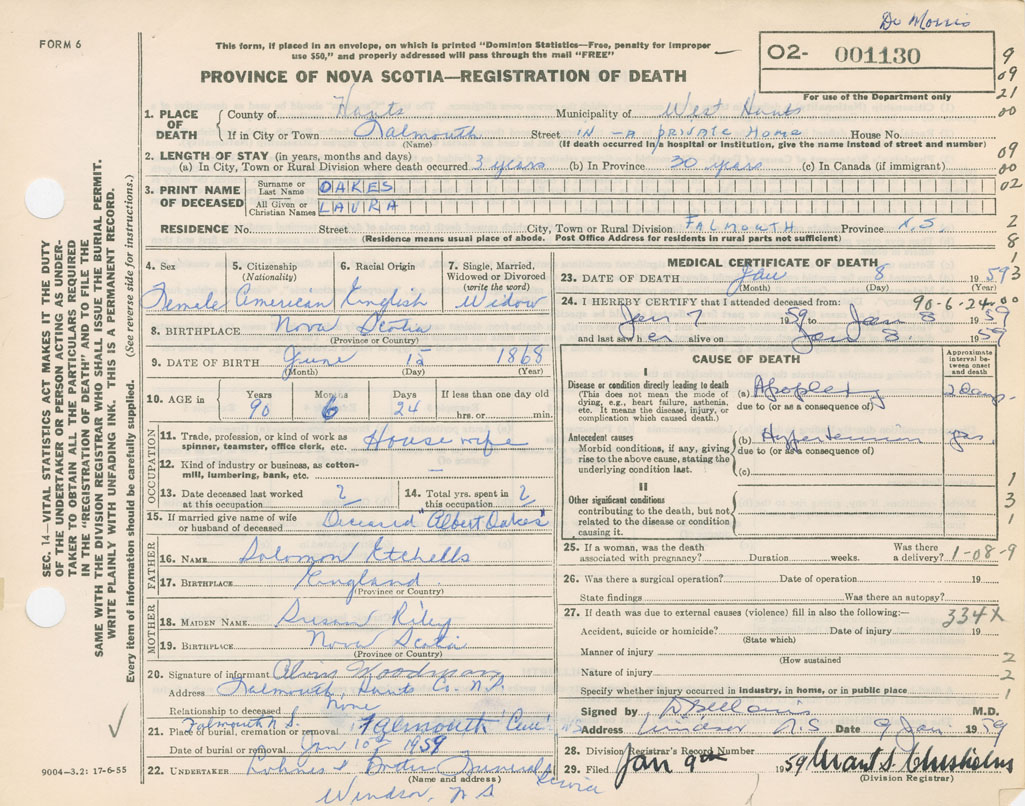 De Morris
FORM 6
This form, if placed in an envelope, on which is printed "Dominion Statistics—Free, penalty for improper
use $50," and properly addressed will pass through the mail "FREE"
02- 001130
PROVINCE OF NOVA SCOTIA—REGISTRATION OF DEATH
For use of the Department only
9
09
21
00
09
00
02
2
8
1
3
1. PLACE OF DEATH
County of Hants Municipality of West Hants
If in City or Town Falmouth Street IN - A PRIVATE HOME House No.
(Name) (If death occurred in a hospital or institution, give the name instead of street and number)
2. LENGTH OF STAY (in years, months and days)
(a) In City, Town or Rural Division where death occurred 3 years (b) In Province 30 years (c) In Canada (if immigrant)
3. PRINT NAME OF DECEASED
Surname or Last Name OAKES
All Given or Christian Names LAURA
RESIDENCE No. Street City, Town or Rural Division FALMOUTH Province N.S.
(Residence means usual place of abode. Post Office Address for residents in rural parts not sufficient)
4. Sex
Female
5. Citizenship
(Nationality)
American
6. Racial Origin
English
7. Single, Married,
Widowed or Divorced
(write the word)
Widow
8. BIRTHPLACE Nova Scotia
(Province or Country)
9. DATE OF BIRTH June 15 1868
(Month) (Day) (Year)
10. AGE in
Years Months Days If less than one day old
90 6 24 hrs. or min.
OCCUPATION
11. Trade, profession, or kind of work as
spinner, teamster, office clerk, etc. Housewife
12. Kind of industry or business, as cotton-
mill, lumbering, bank, etc. —
13. Date deceased last worked
at this occupation 2
14. Total yrs. spent in
this occupation 2
15. If married give name of wife
or husband of deceased Deceased "Albert Oakes"
FATHER
16. NAME Solomon Etchells
17. BIRTHPLACE England
(Province or Country)
MOTHER
18. MAIDEN NAME Susan Riley
19. BIRTHPLACE Nova Scotia
(Province or Country)
20. Signature of informant Alvin Woodman
Address Falmouth, Hants Co. N.S.
Relationship to deceased None
Falmouth N.S.
21. Place of burial, cremation or removal Falmouth Cem. N.S.
Date of burial or removal Jan 10th 1959
22. UNDERTAKER Brother Funeral Service
(Name and address)
Windsor, N S
MEDICAL CERTIFICATE OF DEATH
23. DATE OF DEATH Jan 8 1959
(Month) (Day) (Year)
24. I HEREBY CERTIFY that I attended deceased from: 90-6-24-00
Jan 7 1959 to Jan 8 1959
and last saw her alive on Jan 8. 1959
CAUSE OF DEATH
Approximate
interval be-
tween onset
and death
I
Disease or condition directly leading to death
(This does not mean the mode of
dying, e.g., heart failure, asthenia,
etc. It means the disease, injury, or
complication which caused death.)
(a) Apoplexy 2 Days
due to (or as a consequence of)
Antecedent causes
Morbid conditions, if any, giving
rise to the above cause, stating the
underlying condition last.
(b) Hypertension yrs.
due to (or as a consequence of)
(c)
II
Other significant conditions
contributing to the death, but not
related to the disease or condition
causing it.
1
3
1
25. If a woman, was the death
associated with pregnancy? Duration weeks. Was there
a delivery? 1-08-9
26. Was there a surgical operation? Date of operation 19
State findings Was there an autopsy?
27. If death was due to external causes (violence) fill in also the following:— 334X
Accident, suicide or homicide? Date of injury 19
(State which)
Manner of injury
(How sustained
Nature of injury
Specify whether injury occurred in industry, in home, or in public place
2
2
1
Signed by M.D.
Address Windsor N.S. Date 9 Jan 1959
28. Division Registrar's Record Number
29. Filed Jan 9th 1959 Grant S. Chisholm
(Division Registrar)
SEC. 14—VITAL STATISTICS ACT MAKES IT THE DUTY
OF THE UNDERTAKER OR PERSON ACTING AS UNDER-
TAKER TO OBTAIN ALL THE PARTICULARS REQUIRED
IN THE "REGISTRATION OF DEATH" AND TO FILE THE
SAME WITH THE DIVISION REGISTRAR WHO SHALL ISSUE THE BURIAL PERMIT.
WRITE PLAINLY WITH UNFADING INK. THIS IS A PERMANENT RECORD.
Every item of information should be carefully supplied. (See reverse side for instructions.)
9004-3.2: 17-6-55